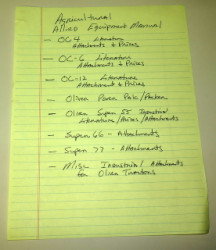 Agricultural
Allied Equipment Manual
- OC-4 Literature
Attachments & Prices
- OC-6 Literature
Attachments & Prices
- OC-12 Literature
Attachments & Prices
- Oliver Power
- Oliver Super 55 Industrial
Literature/Prices/Attachments
- Super 66 - Attachments
- Super 77 - Attachments
- Misc Industrial Attachments
for Oliver Tractors